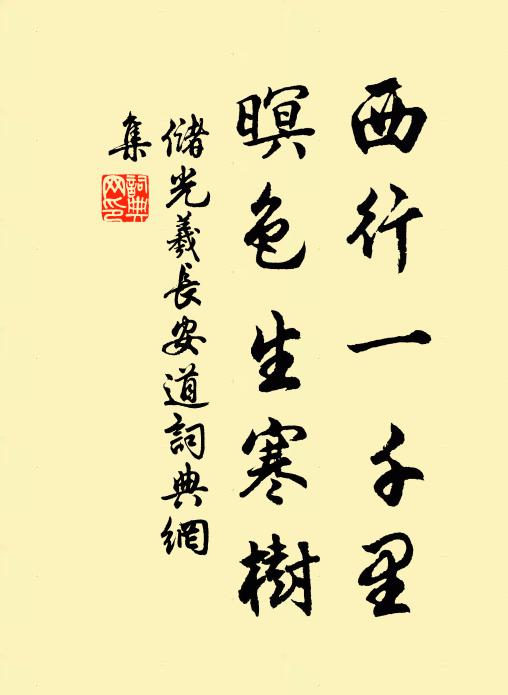 西行一千里
暝色生寒樹
儲光羲長安道詞典網
集
詞典
網印